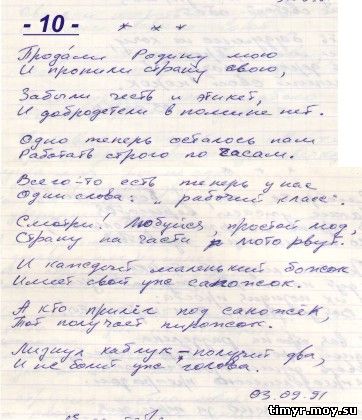 - 10 -
* * *
Продали Родину мою
И пропили страну свою,
Забыли честь и этикет,
И добродетели в помине нет.
Одно теперь осталось нам
Работать строго по часам.
Всего-то есть теперь у нас
Одни слова: "рабочий класс".
Смотри! Любуйся, простой люд,
Страну на части рвут.
И каждый маленький божок
Имеет свой уже сапожок.
А кто прилёг под сапожек,
Тот получает пирожок.
Лизнул каблук – получит два,
И не болит уже голова.
03.09.91
timyr.moy.su